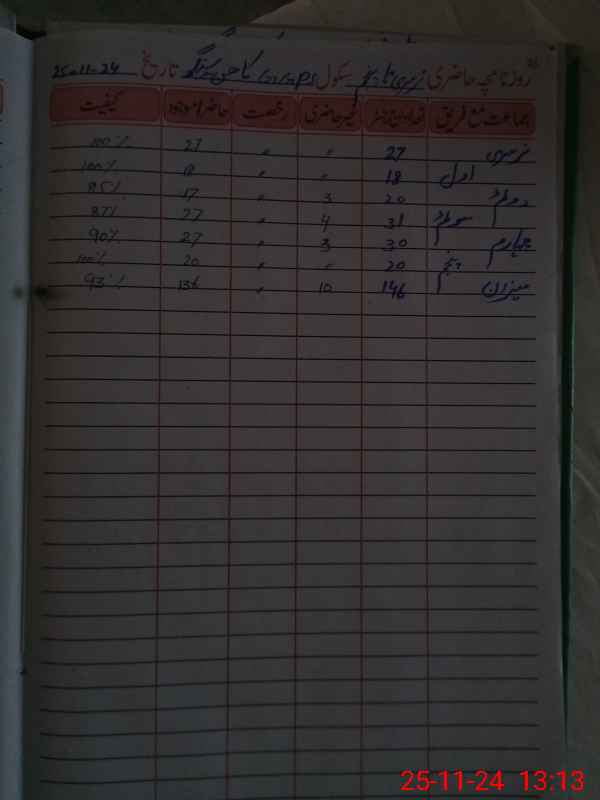 روزنامچہ حاضری نرسری تا پنجم سکول GGPS کاہن سنگھ تاریخ 25-11-24
جماعت مع فریق تعداد مندرجہ رجسٹر غیر حاضری رخصت حاضر/موجود کیفیت
نرسری 27 〃 〃 27 100%
اول 18 〃 〃 18 100%
دوئم 20 3 〃 17 85%
سوئم 31 4 〃 27 87%
چہارم 30 3 〃 27 90%
پنجم 20 〃 〃 20 100%
میزان 146 10 〃 136 93%
25-11-24 13:13